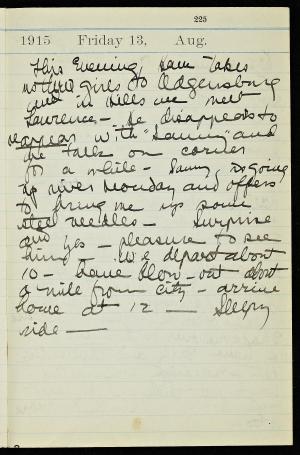 225
1915 Friday 13, Aug.
This Evening, Sam takes
mother girls to Ogdensburg
and in Hills we meet
Lawrence - He disappears to
reappear with "Sammy" and
we talk on corner
for a while - Sammy, is going
up river Monday and offers
to bring me up some
steel needles - Surprise
and yes - pleasure to see
him - We depart about
10 - have blow-out about
a mile from city - arrive
home at 12 - Sleepy
ride -